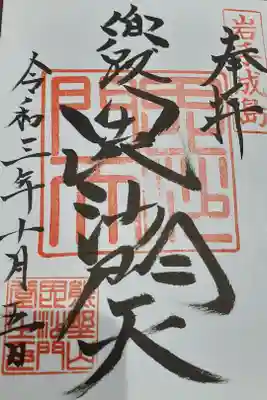 岩手成島
奉拝
兜跋毘沙門天
令和三年十月五日